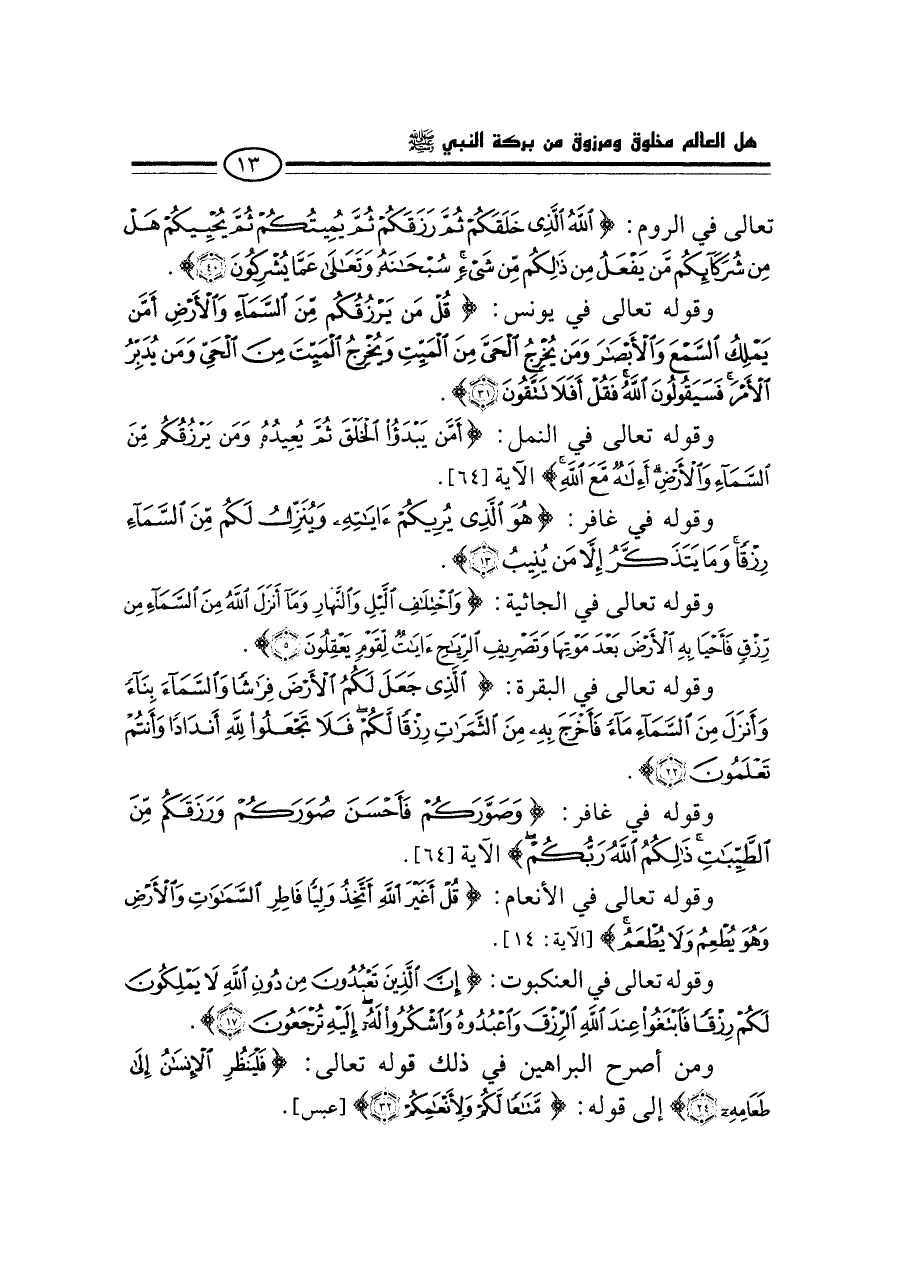 هل العالم مخلوق ومرزوق من بركة النبي ﷺ
١٣
تعالى في الروم: ﴿ ٱللَّهُ ٱلَّذِى خَلَقَكُمْ ثُمَّ رَزَقَكُمْ ثُمَّ يُمِيتُكُمْ ثُمَّ يُحْيِيكُمْ هَلْ
مِن شُرَكَآئِكُم مَّن يَفْعَلُ مِن ذَٰلِكُم مِّن شَىْءٍ ۚ سُبْحَٰنَهُۥ وَتَعَٰلَىٰ عَمَّا يُشْرِكُونَ ٤٠﴾ .
وقوله تعالى في يونس: ﴿ قُلْ مَن يَرْزُقُكُم مِّنَ ٱلسَّمَآءِ وَٱلْأَرْضِ أَمَّن
يَمْلِكُ ٱلسَّمْعَ وَٱلْأَبْصَٰرَ وَمَن يُخْرِجُ ٱلْحَىَّ مِنَ ٱلْمَيِّتِ وَيُخْرِجُ ٱلْمَيِّتَ مِنَ ٱلْحَىِّ وَمَن يُدَبِّرُ
ٱلْأَمْرَ ۚ فَسَيَقُولُونَ ٱللَّهُ ۚ فَقُلْ أَفَلَا تَتَّقُونَ ٣١﴾ .
وقوله تعالى في النمل: ﴿أَمَّن يَبْدَؤُا۟ ٱلْخَلْقَ ثُمَّ يُعِيدُهُۥ وَمَن يَرْزُقُكُم مِّنَ
ٱلسَّمَآءِ وَٱلْأَرْضِ ۗ أَءِلَٰهٌ مَّعَ ٱللَّهِ ۚ﴾ الآية [٦٤].
وقوله في غافر: ﴿ هُوَ ٱلَّذِى يُرِيكُمْ ءَايَٰتِهِۦ وَيُنَزِّلُ لَكُم مِّنَ ٱلسَّمَآءِ
رِزْقًا ۚ وَمَا يَتَذَكَّرُ إِلَّا مَن يُنِيبُ ١٣﴾ .
وقوله تعالى في الجاثية: ﴿ وَٱخْتِلَٰفِ ٱلَّيْلِ وَٱلنَّهَارِ وَمَآ أَنزَلَ ٱللَّهُ مِنَ ٱلسَّمَآءِ مِن
رِّزْقٍ فَأَحْيَا بِهِ ٱلْأَرْضَ بَعْدَ مَوْتِهَا وَتَصْرِيفِ ٱلرِّيَٰحِ ءَايَٰتٌ لِّقَوْمٍ يَعْقِلُونَ ٥﴾ .
وقوله تعالى في البقرة: ﴿ ٱلَّذِى جَعَلَ لَكُمُ ٱلْأَرْضَ فِرَٰشًا وَٱلسَّمَآءَ بِنَآءً
وَأَنزَلَ مِنَ ٱلسَّمَآءِ مَآءً فَأَخْرَجَ بِهِۦ مِنَ ٱلثَّمَرَٰتِ رِزْقًا لَّكُمْ ۖ فَلَا تَجْعَلُوا۟ لِلَّهِ أَندَادًا وَأَنتُمْ
تَعْلَمُونَ ٢٢﴾ .
وقوله في غافر: ﴿ وَصَوَّرَكُمْ فَأَحْسَنَ صُوَرَكُمْ وَرَزَقَكُم مِّنَ
ٱلطَّيِّبَٰتِ ۚ ذَٰلِكُمُ ٱللَّهُ رَبُّكُمْ ۖ﴾ الآية [٦٤].
وقوله تعالى في الأنعام: ﴿ قُلْ أَغَيْرَ ٱللَّهِ أَتَّخِذُ وَلِيًّا فَاطِرِ ٱلسَّمَٰوَٰتِ وَٱلْأَرْضِ
وَهُوَ يُطْعِمُ وَلَا يُطْعَمُ ۗ﴾ [الآية: ١٤].
وقوله تعالى في العنكبوت: ﴿ إِنَّ ٱلَّذِينَ تَعْبُدُونَ مِن دُونِ ٱللَّهِ لَا يَمْلِكُونَ
لَكُمْ رِزْقًا فَٱبْتَغُوا۟ عِندَ ٱللَّهِ ٱلرِّزْقَ وَٱعْبُدُوهُ وَٱشْكُرُوا۟ لَهُۥٓ ۖ إِلَيْهِ تُرْجَعُونَ ١٧﴾ .
ومن أصرح البراهين في ذلك قوله تعالى: ﴿ فَلْيَنظُرِ ٱلْإِنسَٰنُ إِلَىٰ
طَعَامِهِۦٓ ٢٤﴾ إلى قوله: ﴿ مَّتَٰعًا لَّكُمْ وَلِأَنْعَٰمِكُمْ ٣٢﴾ [عبس].